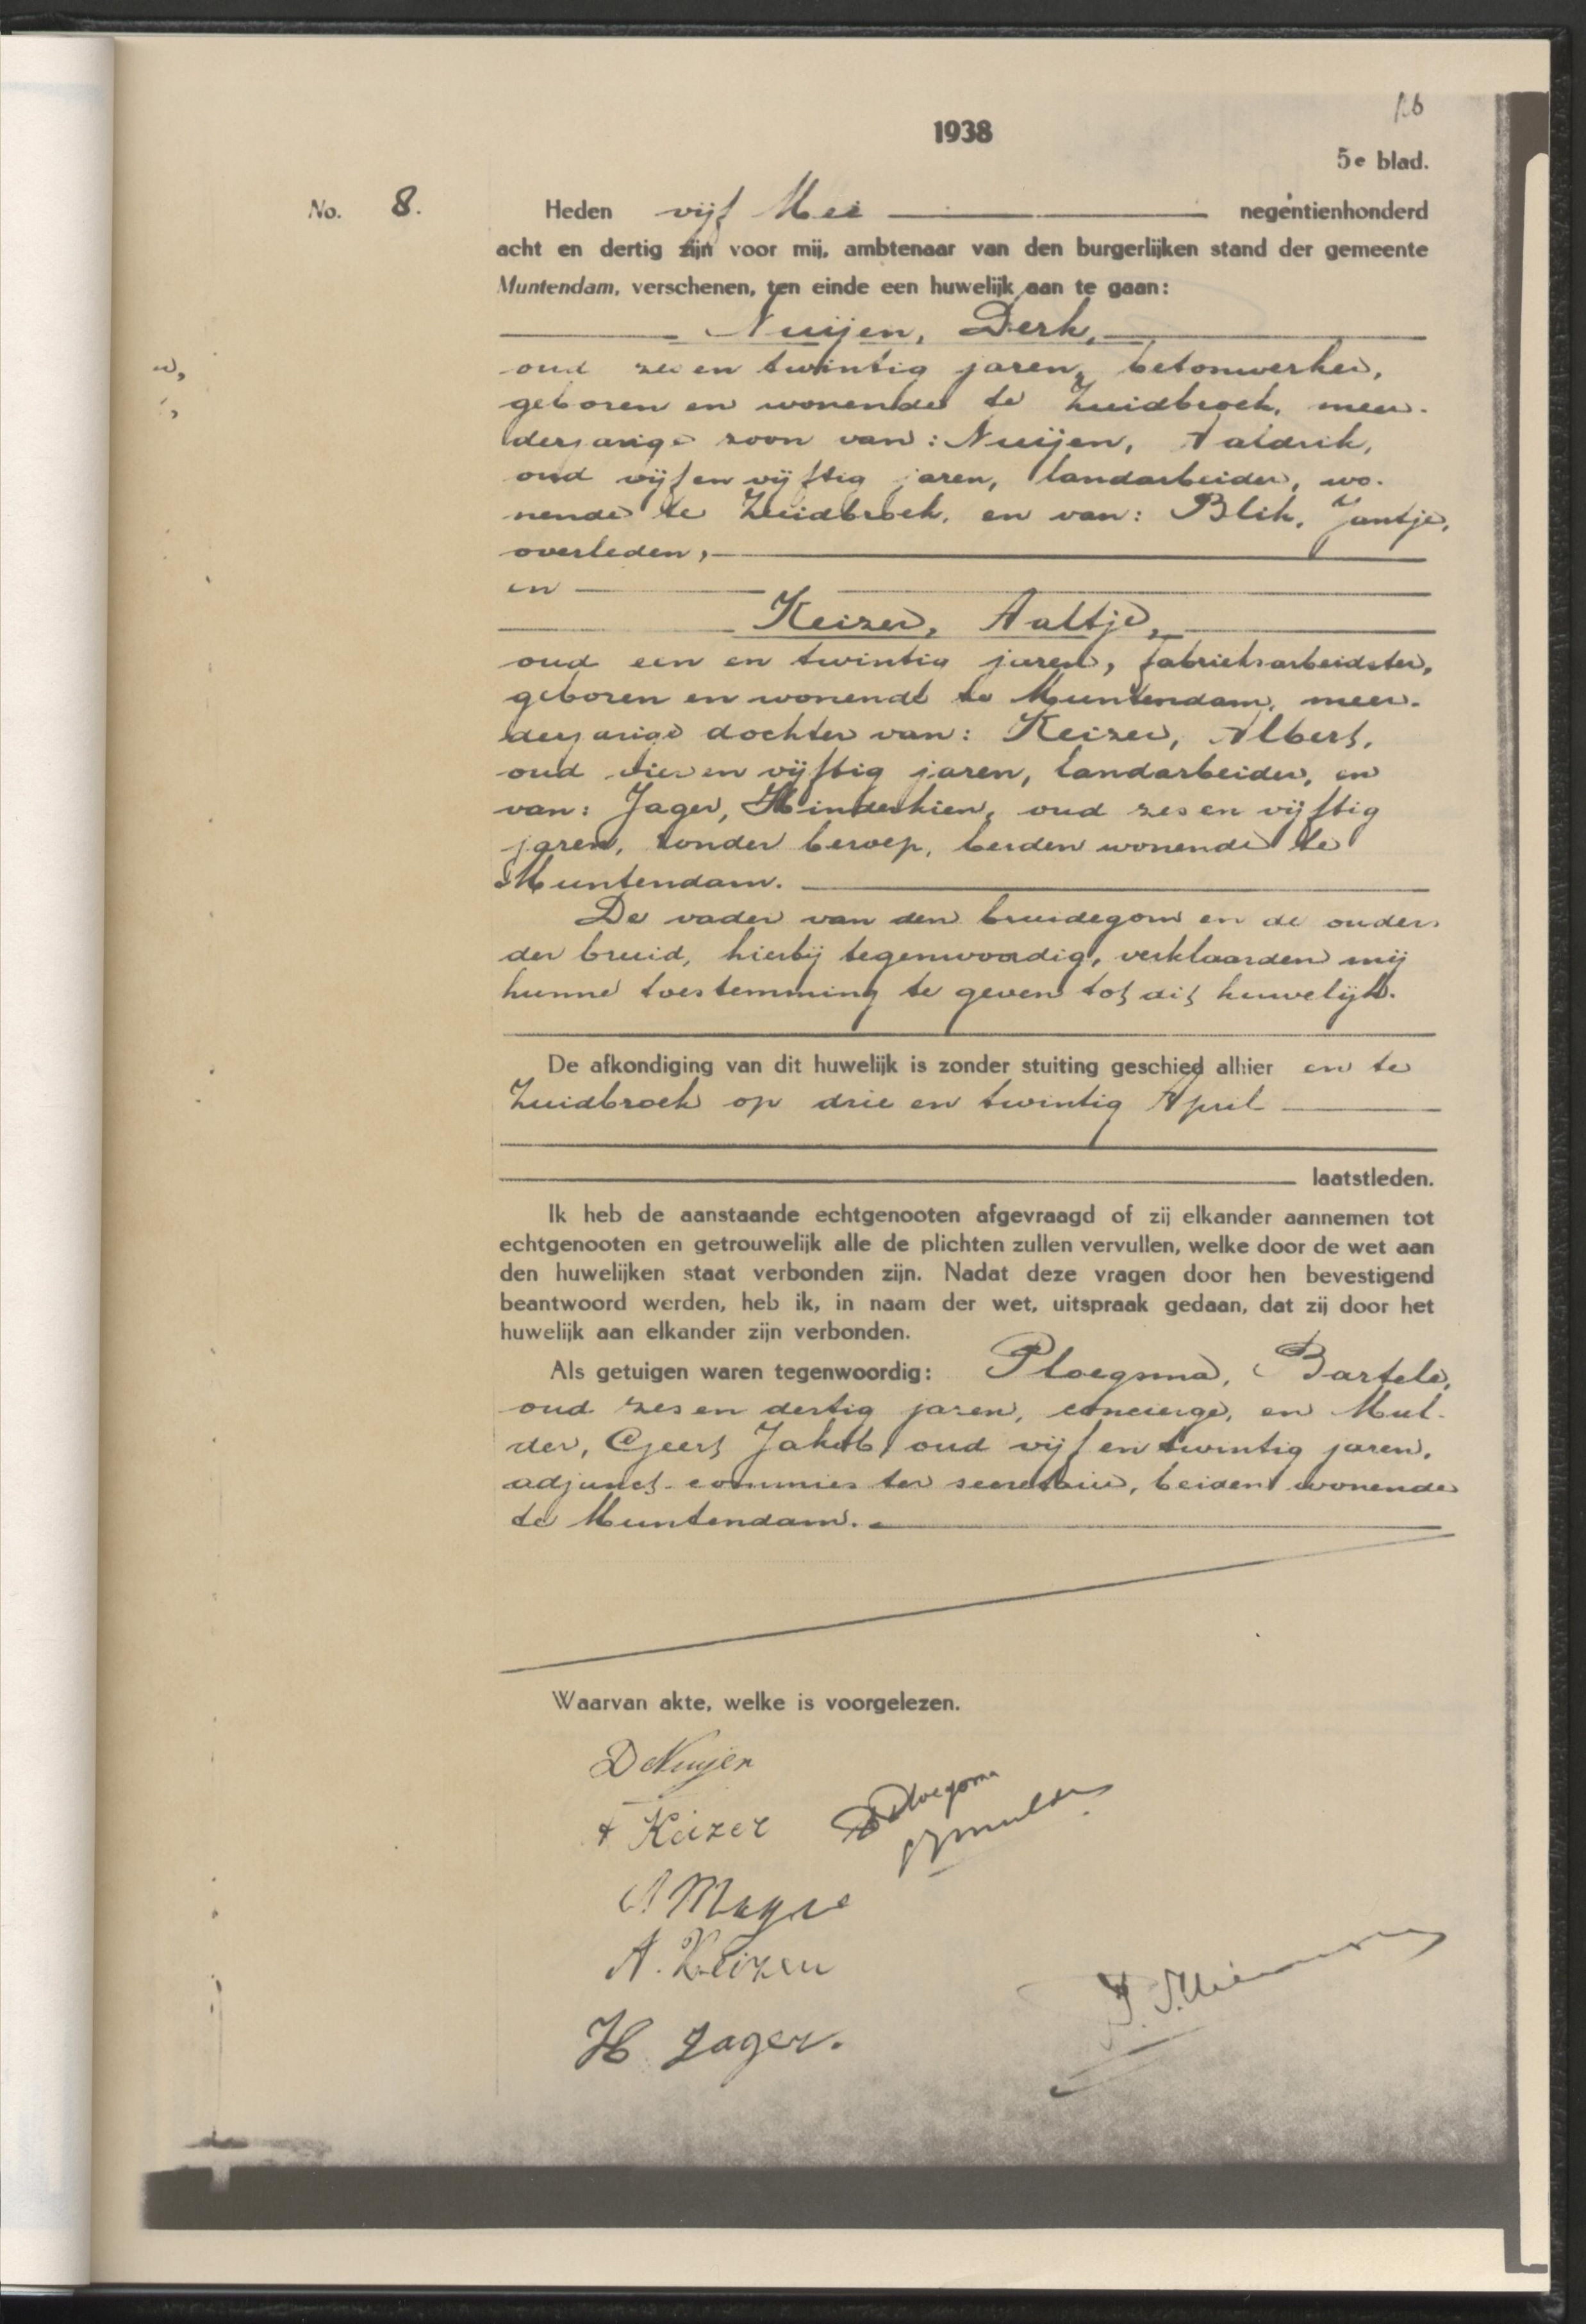 1938
5e blad.
No. 8.
Heden vijf Mei negentienhonderd
acht en dertig zijn voor mij, ambtenaar van den burgerlijken stand der gemeente
Muntendam, verschenen, ten einde een huwelijk aan te gaan:
Nuijen, Derk,
oud en twintig jaren, betonwerker,
geboren en wonende te Zuidbroek, meer-
derjarige zoon van: Nuijen, Aaldrik,
oud vijf en vijftig jaren, landarbeider, wo-
nende te Zuidbroek, en van: Blik, Jantje,
overleden,
en
Keizer, Aaltje,
oud een en twintig jaren, fabrieksarbeidster,
geboren en wonende te Muntendam, meer-
derjarige dochter van: Keizer, Albert,
oud vier en vijftig jaren, landarbeider, en
van: Jager, Hinderkien, oud zes en vijftig
jaren, zonder beroep, beiden wonende te
Muntendam.
De vader van den bruidegom en de ouders
der bruid, hierbij tegenwoordig, verklaarden mij
hunne toestemming te geven tot dit huwelijk.
De afkondiging van dit huwelijk is zonder stuiting geschied alhier en te
Zuidbroek op drie en twintig April
laatstleden.
Ik heb de aanstaande echtgenooten afgevraagd of zij elkander aannemen tot
echtgenooten en getrouwelijk alle de plichten zullen vervullen, welke door de wet aan
den huwelijken staat verbonden zijn. Nadat deze vragen door hen bevestigend
beantwoord werden, heb ik, in naam der wet, uitspraak gedaan, dat zij door het
huwelijk aan elkander zijn verbonden.
Als getuigen waren tegenwoordig: Ploegsma, Bartele,
oud zes en dertig jaren, concierge, en Mul-
der, Geert Jakob, oud vijf en twintig jaren,
adjunct-commies ter secretarie, beiden wonende
te Muntendam.
Waarvan akte, welke is voorgelezen.
D Nuijen
Keizer
B Ploegsma
GJ Mulder
A. Keizer
H Jager.